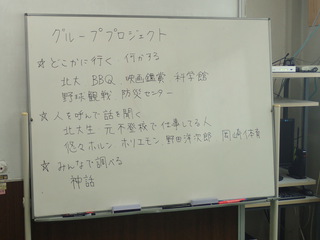 グループプロジェクト
☆どこかに行く 何かする
北大 BBQ 映画鑑賞 科学館
野球観戦 防災センター
☆人を呼んで話を聞く
北大生 元不登校で仕事してる人
悠々ホルン ホリエモン 野田洋次郎 岡崎体育
☆みんなで調べる
神話